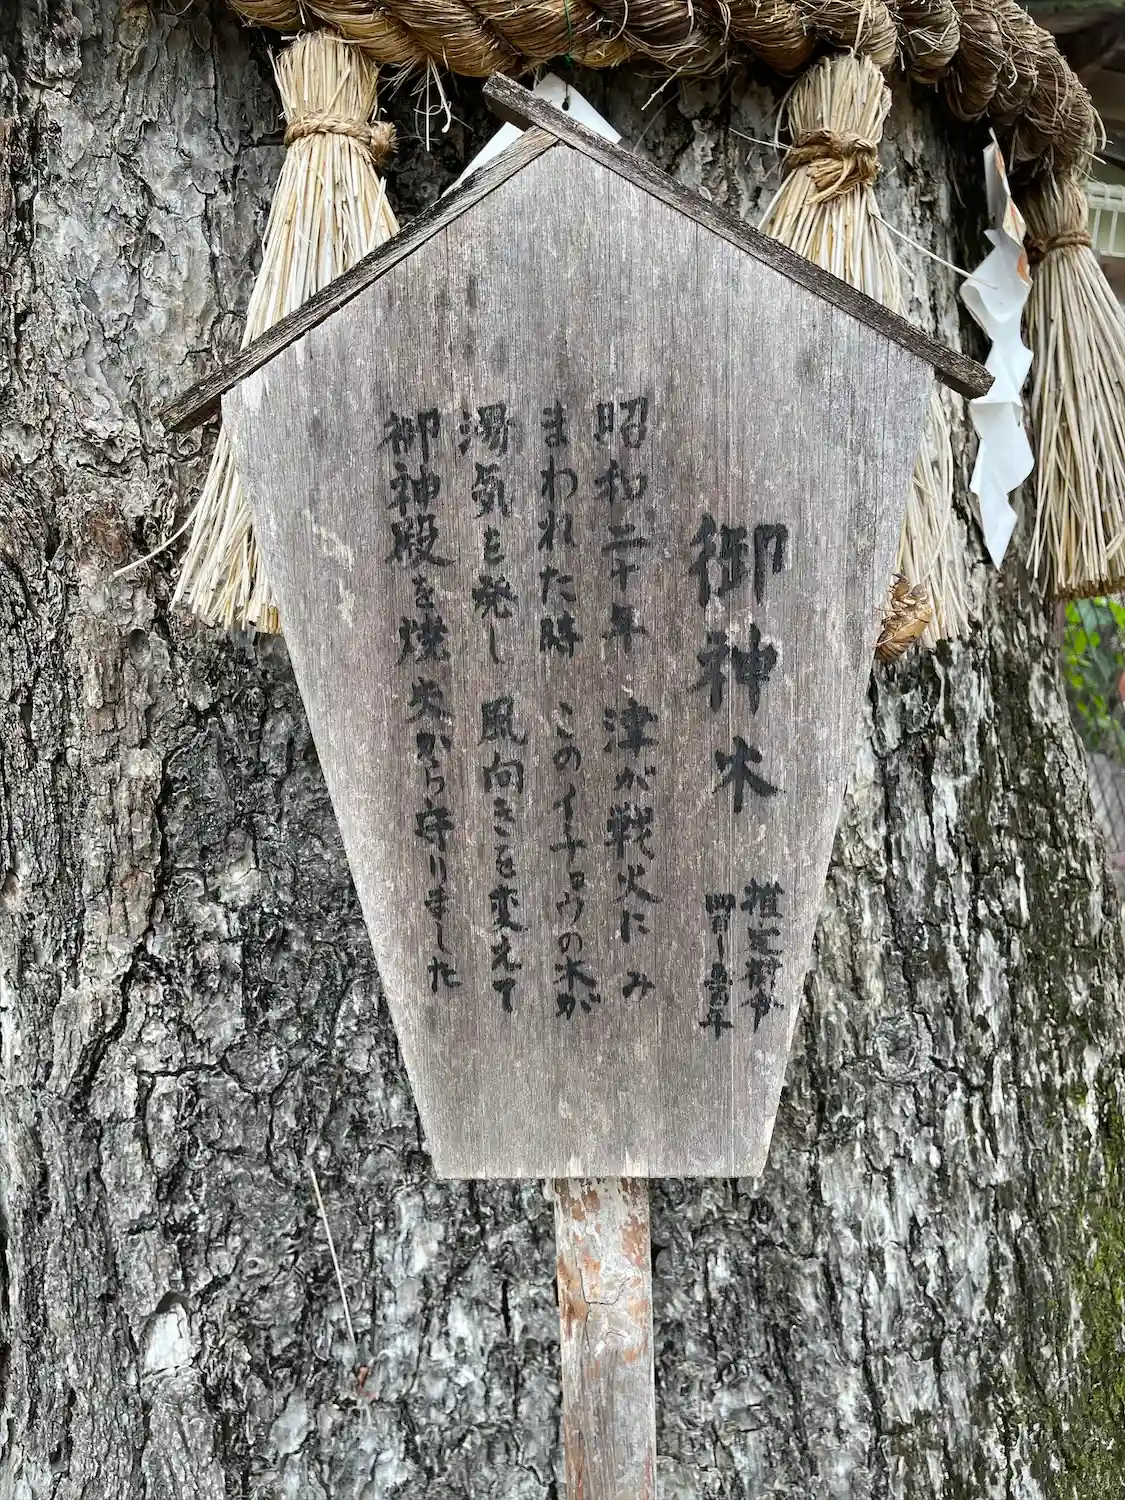 御神木
推定樹令
四百~五百年
昭和二十年 津が戦火に み
まわれた時 このイチョウの木が
湯気を発し 風向きを変えて
御神殿を焼失から守りました